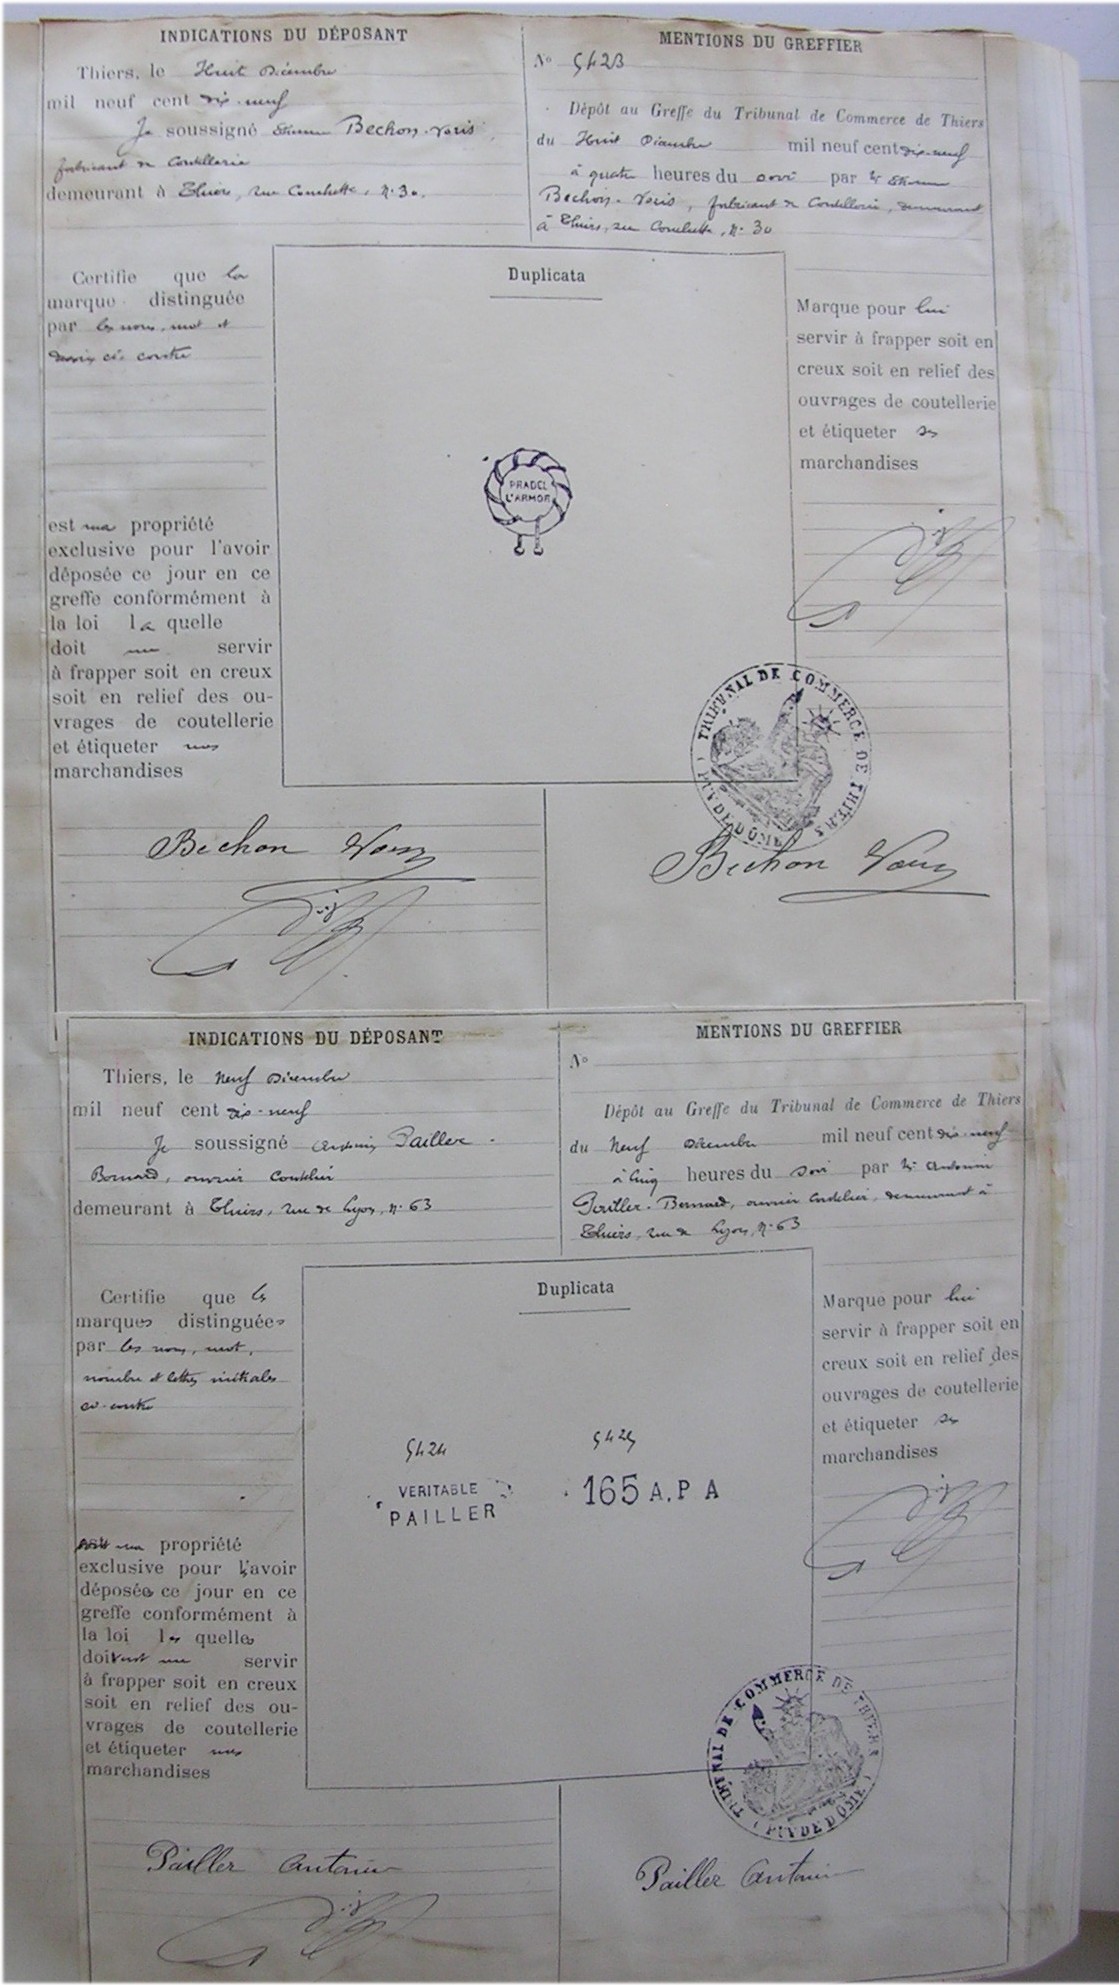 INDICATIONS DU DÉPOSANT
Thiers, le Huit Décembre
mil neuf cent dix-neuf
Je soussigné Etienne Bechon-Voris
fabricant de Coutellerie
demeurant à Thiers, rue Conchette, N. 30.
MENTIONS DU GREFFIER
N° 5423
Dépôt au Greffe du Tribunal de Commerce de Thiers
du Huit Décembre mil neuf cent dix-neuf
à quatre heures du soir par Mr Etienne
Bechon-Voris, fabricant de Coutellerie, demeurant
à Thiers, rue Conchette, N. 30
Certifie que la
marque distinguée
par les noms, mot et
dessin ci-contre
est ma propriété
exclusive pour l'avoir
déposée ce jour en ce
greffe conformément à
la loi la quelle
doit me servir
à frapper soit en creux
soit en relief des ou-
vrages de coutellerie
et étiqueter mes
marchandises
Duplicata
PRADEL
L'ARMOR
Marque pour lui
servir à frapper soit en
creux soit en relief des
ouvrages de coutellerie
et étiqueter ses
marchandises
TRIBUNAL DE COMMERCE DE THIERS
(PUY DE DÔME)
Bechon
Bechon
INDICATIONS DU DÉPOSANT
Thiers, le Neuf Décembre
mil neuf cent dix-neuf
Je soussigné Antonin Pailler-
Bernard, ouvrier Coutelier
demeurant à Thiers, rue de Lyon, N. 63
MENTIONS DU GREFFIER
N°
Dépôt au Greffe du Tribunal de Commerce de Thiers
du Neuf Décembre mil neuf cent dix-neuf
à Cinq heures du soir par Mr Antonin
Pailler-Bernard, ouvrier Coutelier, demeurant à
Thiers, rue de Lyon, N. 63
Certifie que les
marques distinguées
par les nom, mot,
nombre et lettres initiales
ci-contre
sont ma propriété
exclusive pour l'avoir
déposées ce jour en ce
greffe conformément à
la loi les quelles
doivent me servir
à frapper soit en creux
soit en relief des ou-
vrages de coutellerie
et étiqueter mes
marchandises
Duplicata
5424
VERITABLE
PAILLER
5425
165 A.P A
Marque pour lui
servir à frapper soit en
creux soit en relief des
ouvrages de coutellerie
et étiqueter ses
marchandises
TRIBUNAL DE COMMERCE DE THIERS
(PUY DE DÔME)
Pailler Antonin
Pailler Antonin